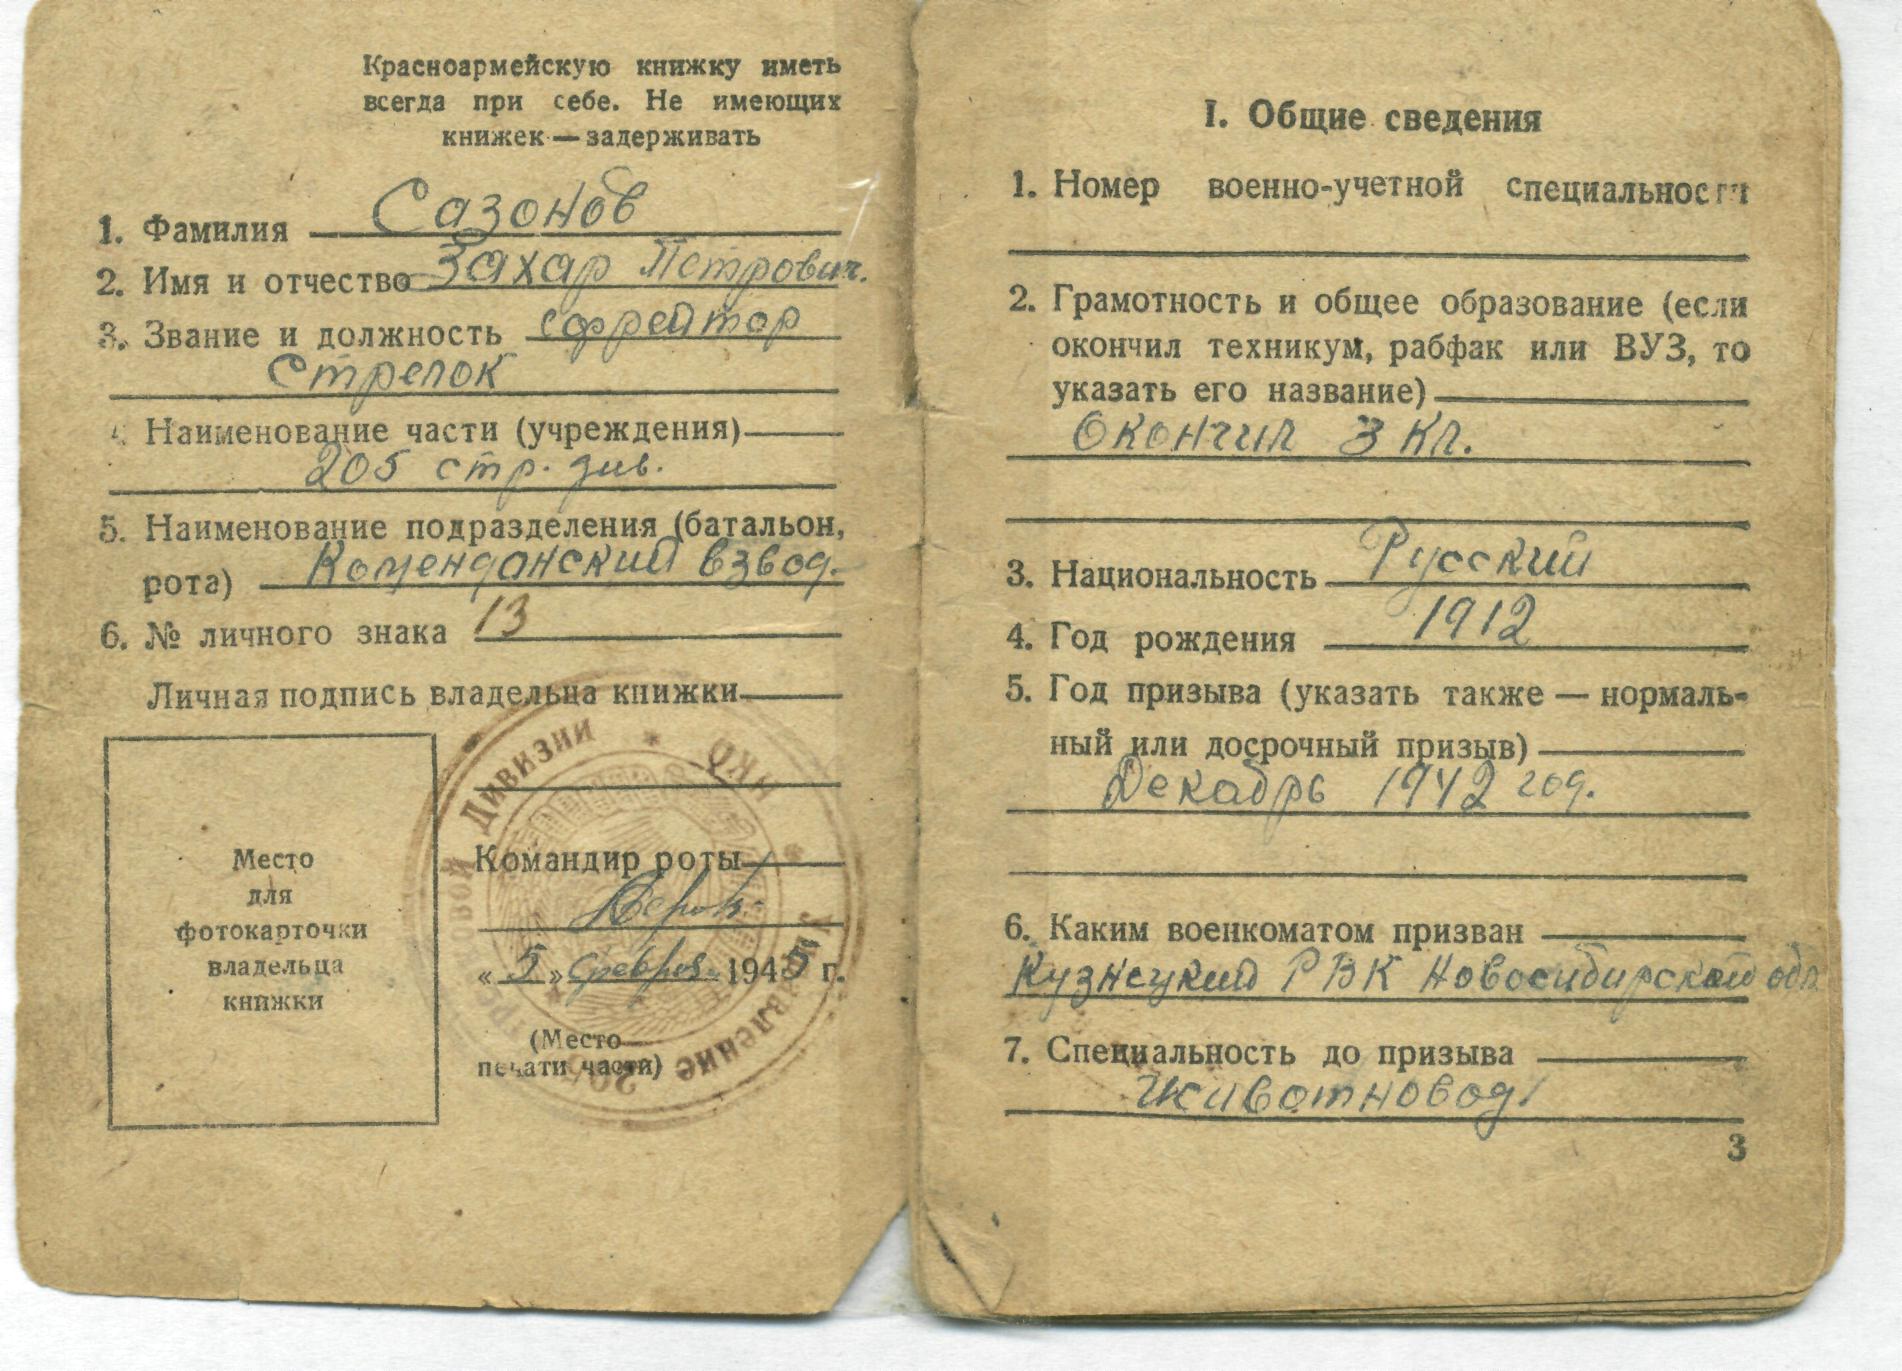 Красноармейскую книжку иметь
всегда при себе. Не имеющих
книжек — задерживать
1. Фамилия Сазонов
2. Имя и отчество Захар Петрович.
3. Звание и должность ефрейтор
Стрелок
4. Наименование части (учреждения)
205 стр. див.
5. Наименование подразделения (батальон,
рота) Коменданский взвод.
6. № личного знака 13
Личная подпись владельца книжки
Место
для
фотокарточки
владельца
книжки
Командир роты
«5» 1945 г.
(Место
печати части)
Дивизии * НКО * Управление 205
I. Общие сведения
1. Номер военно-учетной специальности
2. Грамотность и общее образование (если
окончил техникум, рабфак или ВУЗ, то
указать его название)
Окончил 3 кл.
3. Национальность Русский
4. Год рождения 1912
5. Год призыва (указать также — нормаль-
ный или досрочный призыв)
Декабрь 1942 год.
6. Каким военкоматом призван
Кузнецкий РВК Новосибирской обл
7. Специальность до призыва
Животновод
3